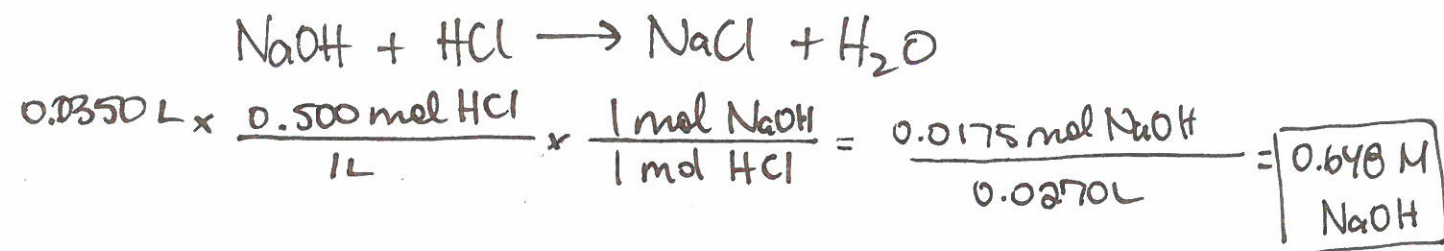 NaOH + HCl → NaCl + H₂O
0.0350 L x 0.500 mol HCl / 1L x 1 mol NaOH / 1 mol HCl = 0.0175 mol NaOH / 0.0270L = 0.648 M NaOH